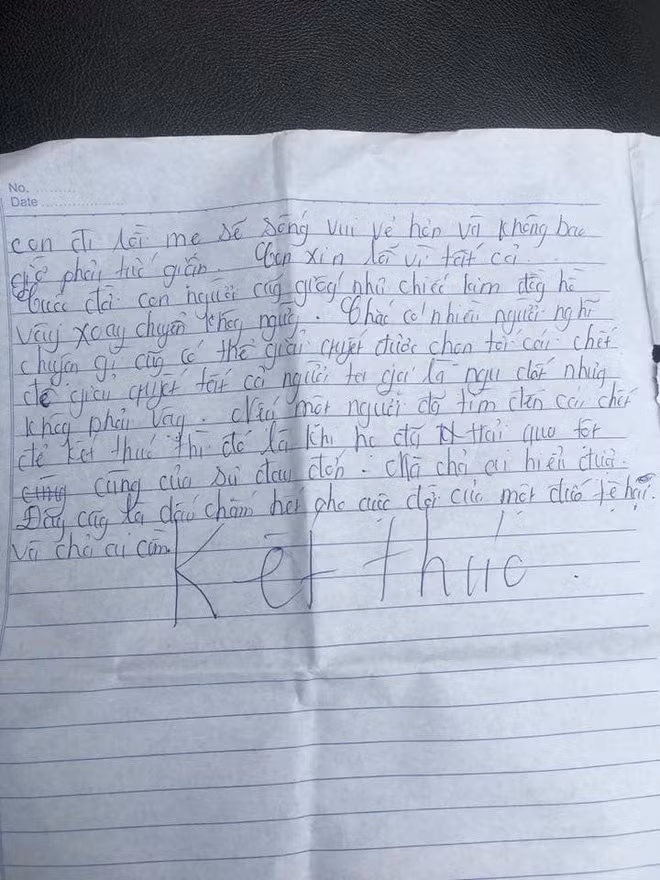 No. ..........
Date ....................
con đi rồi mẹ sẽ sống vui vẻ hơn và không bao
giờ phải tức giận. Con xin lỗi vì tất cả.
Cuộc đời con người cũng giống như chiếc kim đồng hồ
vậy xoay chuyển không ngừng. Chắc có nhiều người nghĩ
chuyện gì cũng có thể giải quyết được chọn tới cái chết
để giải quyết tất cả người ta gọi là ngu dốt nhưng
không phải vậy. Nếu một người đã tìm đến cái chết
để kết thúc thì đó là khi họ đã trải qua tột
cùng của sự đau đớn. Mà chả ai hiểu được.
Đây cũng là dấu chấm hết cho cuộc đời của một đứa tệ hại.
và chả ai cần.
Kết thúc.